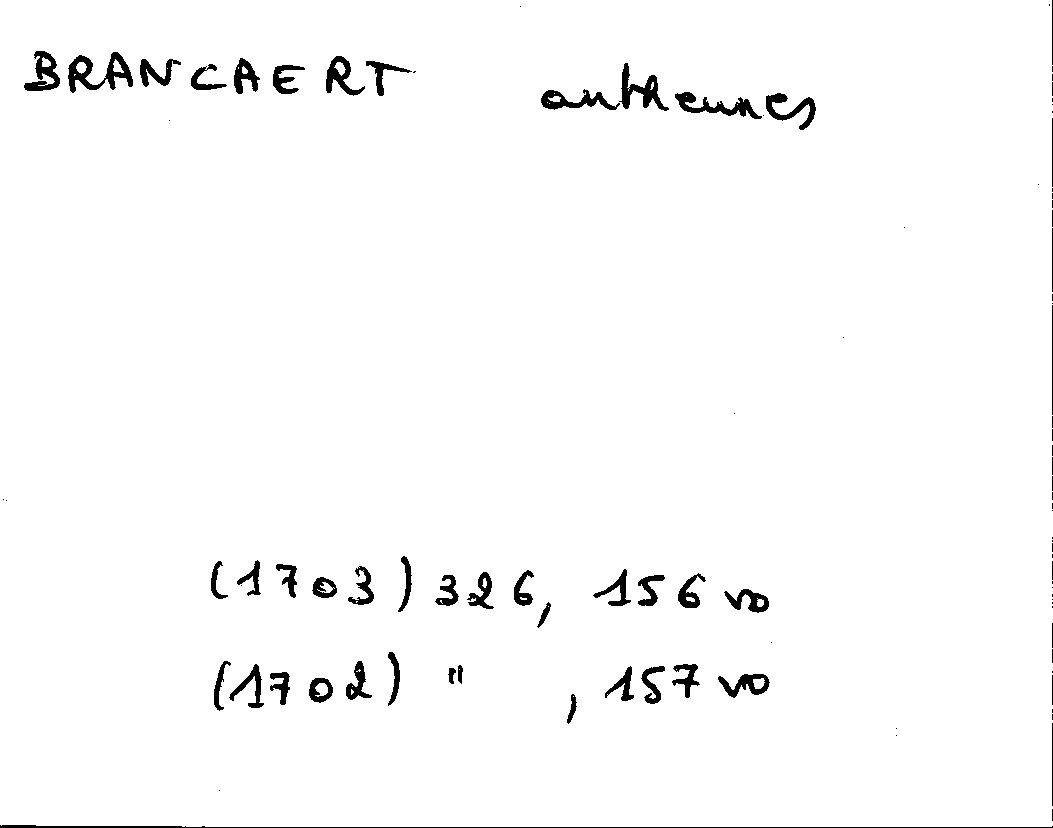 BRANCAERT antheunes
(1703) 326, 156 vo
(1702) " , 157 vo